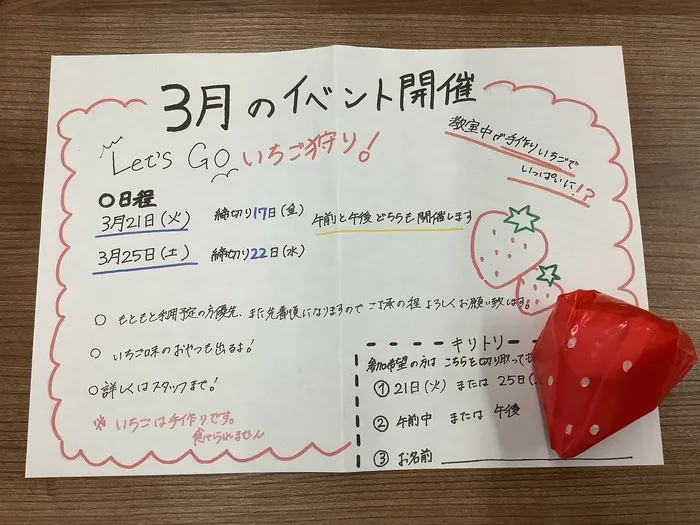 3月のイベント開催
Let's Go いちご狩り!
教室中が手作りいちごで
いっぱいに!?
○日程
3月21日(火) 締切り17日(金)
3月25日(土) 締切り22日(水)
午前と午後どちらも開催します
○ もともと利用予定の方優先、また先着順になりますのでご了承の程よろしくお願い致します。
○ いちご味のおやつも出るよ!
○詳しくはスタッフまで!
※いちごは手作りです。
食べられません
キリトリ
参加希望の方はこちらを切り取って
①21日(火) または 25日(
② 午前中 または 午後
③ お名前